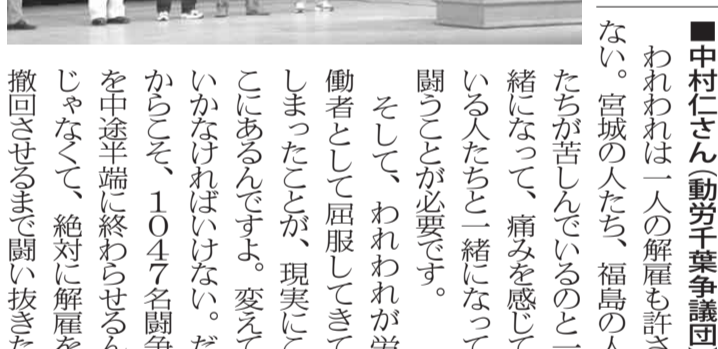 ■中村仁さん（動労千葉争議団
われわれは一人の解雇も許さ
ない。宮城の人たち、福島の人
たちが苦しんでいるのと一
緒になって、痛みを感じて
いる人たちと一緒になって
闘うことが必要です。
そして、われわれが労
働者として屈服してきて
しまったことが、現実にこ
こにあるんですよ。変えて
いかなければいけない。だ
からこそ、1047名闘争
を中途半端に終わらせるん
じゃなくて、絶対に解雇を
撤回させるまで闘い抜きた